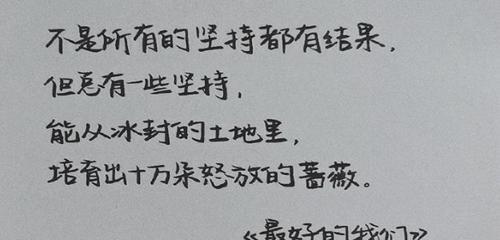 不是所有的坚持都有结果，
但总有一些坚持，
能从冰封的土地里，
培育出十万朵怒放的蔷薇。
《最好的我们》